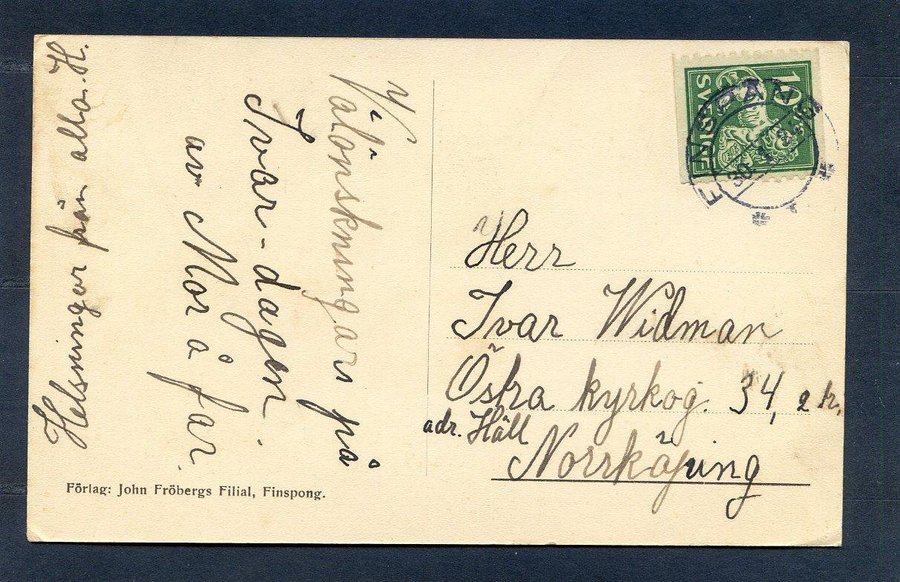 Välönskningars på
Ivar-dagen
av Mor å far.
Helsningar från alla. H.
Förlag: John Fröbergs Filial, Finspong.
SV
10
FINSPÅNG
Herr
Ivar Widman
Östra kyrkog. 34, 2 tr.
adr. Häll
Norrkäping